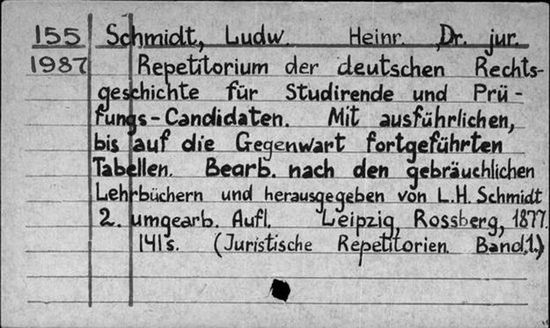 155 Schmidt, Ludw. Heinr. Dr. jur.
1987 Repetitorium der deutschen Rechts-
geschichte für Studirende und Prü-
fungs-Candidaten. Mit ausführlichen,
bis auf die Gegenwart fortgeführten
Tabellen. Bearb. nach den gebräuchlichen
Lehrbüchern und herausgegeben von L.H. Schmidt
2. umgearb. Aufl. Leipzig, Rossberg, 1877.
141s. (Juristische Repetitorien. Band,1.)